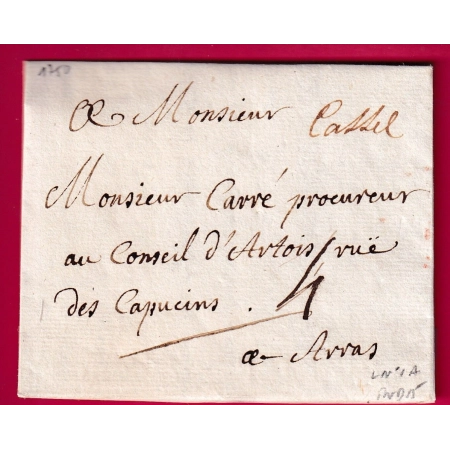 1750
A Monsieur Cassel
Monsieur Carré procureur
au Conseil d'Artois ruë
des Capucins . 4
a Arras
LN°1A